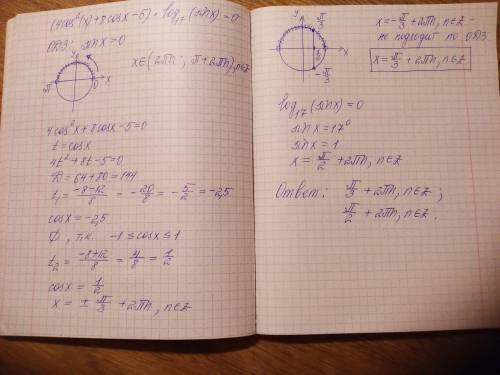 (4cos²(x)+8cosx-5)·log₁₇(sinx)=0
ОДЗ: sinx>0
y
x
π
0
x∈(2πn; π+2πn), n∈Z
4cos²x+8cosx-5=0
t=cosx
4t²+8t-5=0
D=64+80=144
t₁=(-8-12)/8=-20/8=-5/2=-2,5
cosx=-2,5
∅, т.к. -1≤cosx≤1
t₂=(-8+12)/8=4/8=1/2
cosx=1/2
x=±π/3+2πn, n∈Z
y
π/3
x
-π/3
x=-π/3+2πn, n∈Z -
не подходит по ОДЗ
x=π/3+2πn, n∈Z
log₁₇(sinx)=0
sinx=17⁰
sinx=1
x=π/2+2πn, n∈Z
Ответ: π/3+2πn, n∈Z;
π/2+2πn, n∈Z.